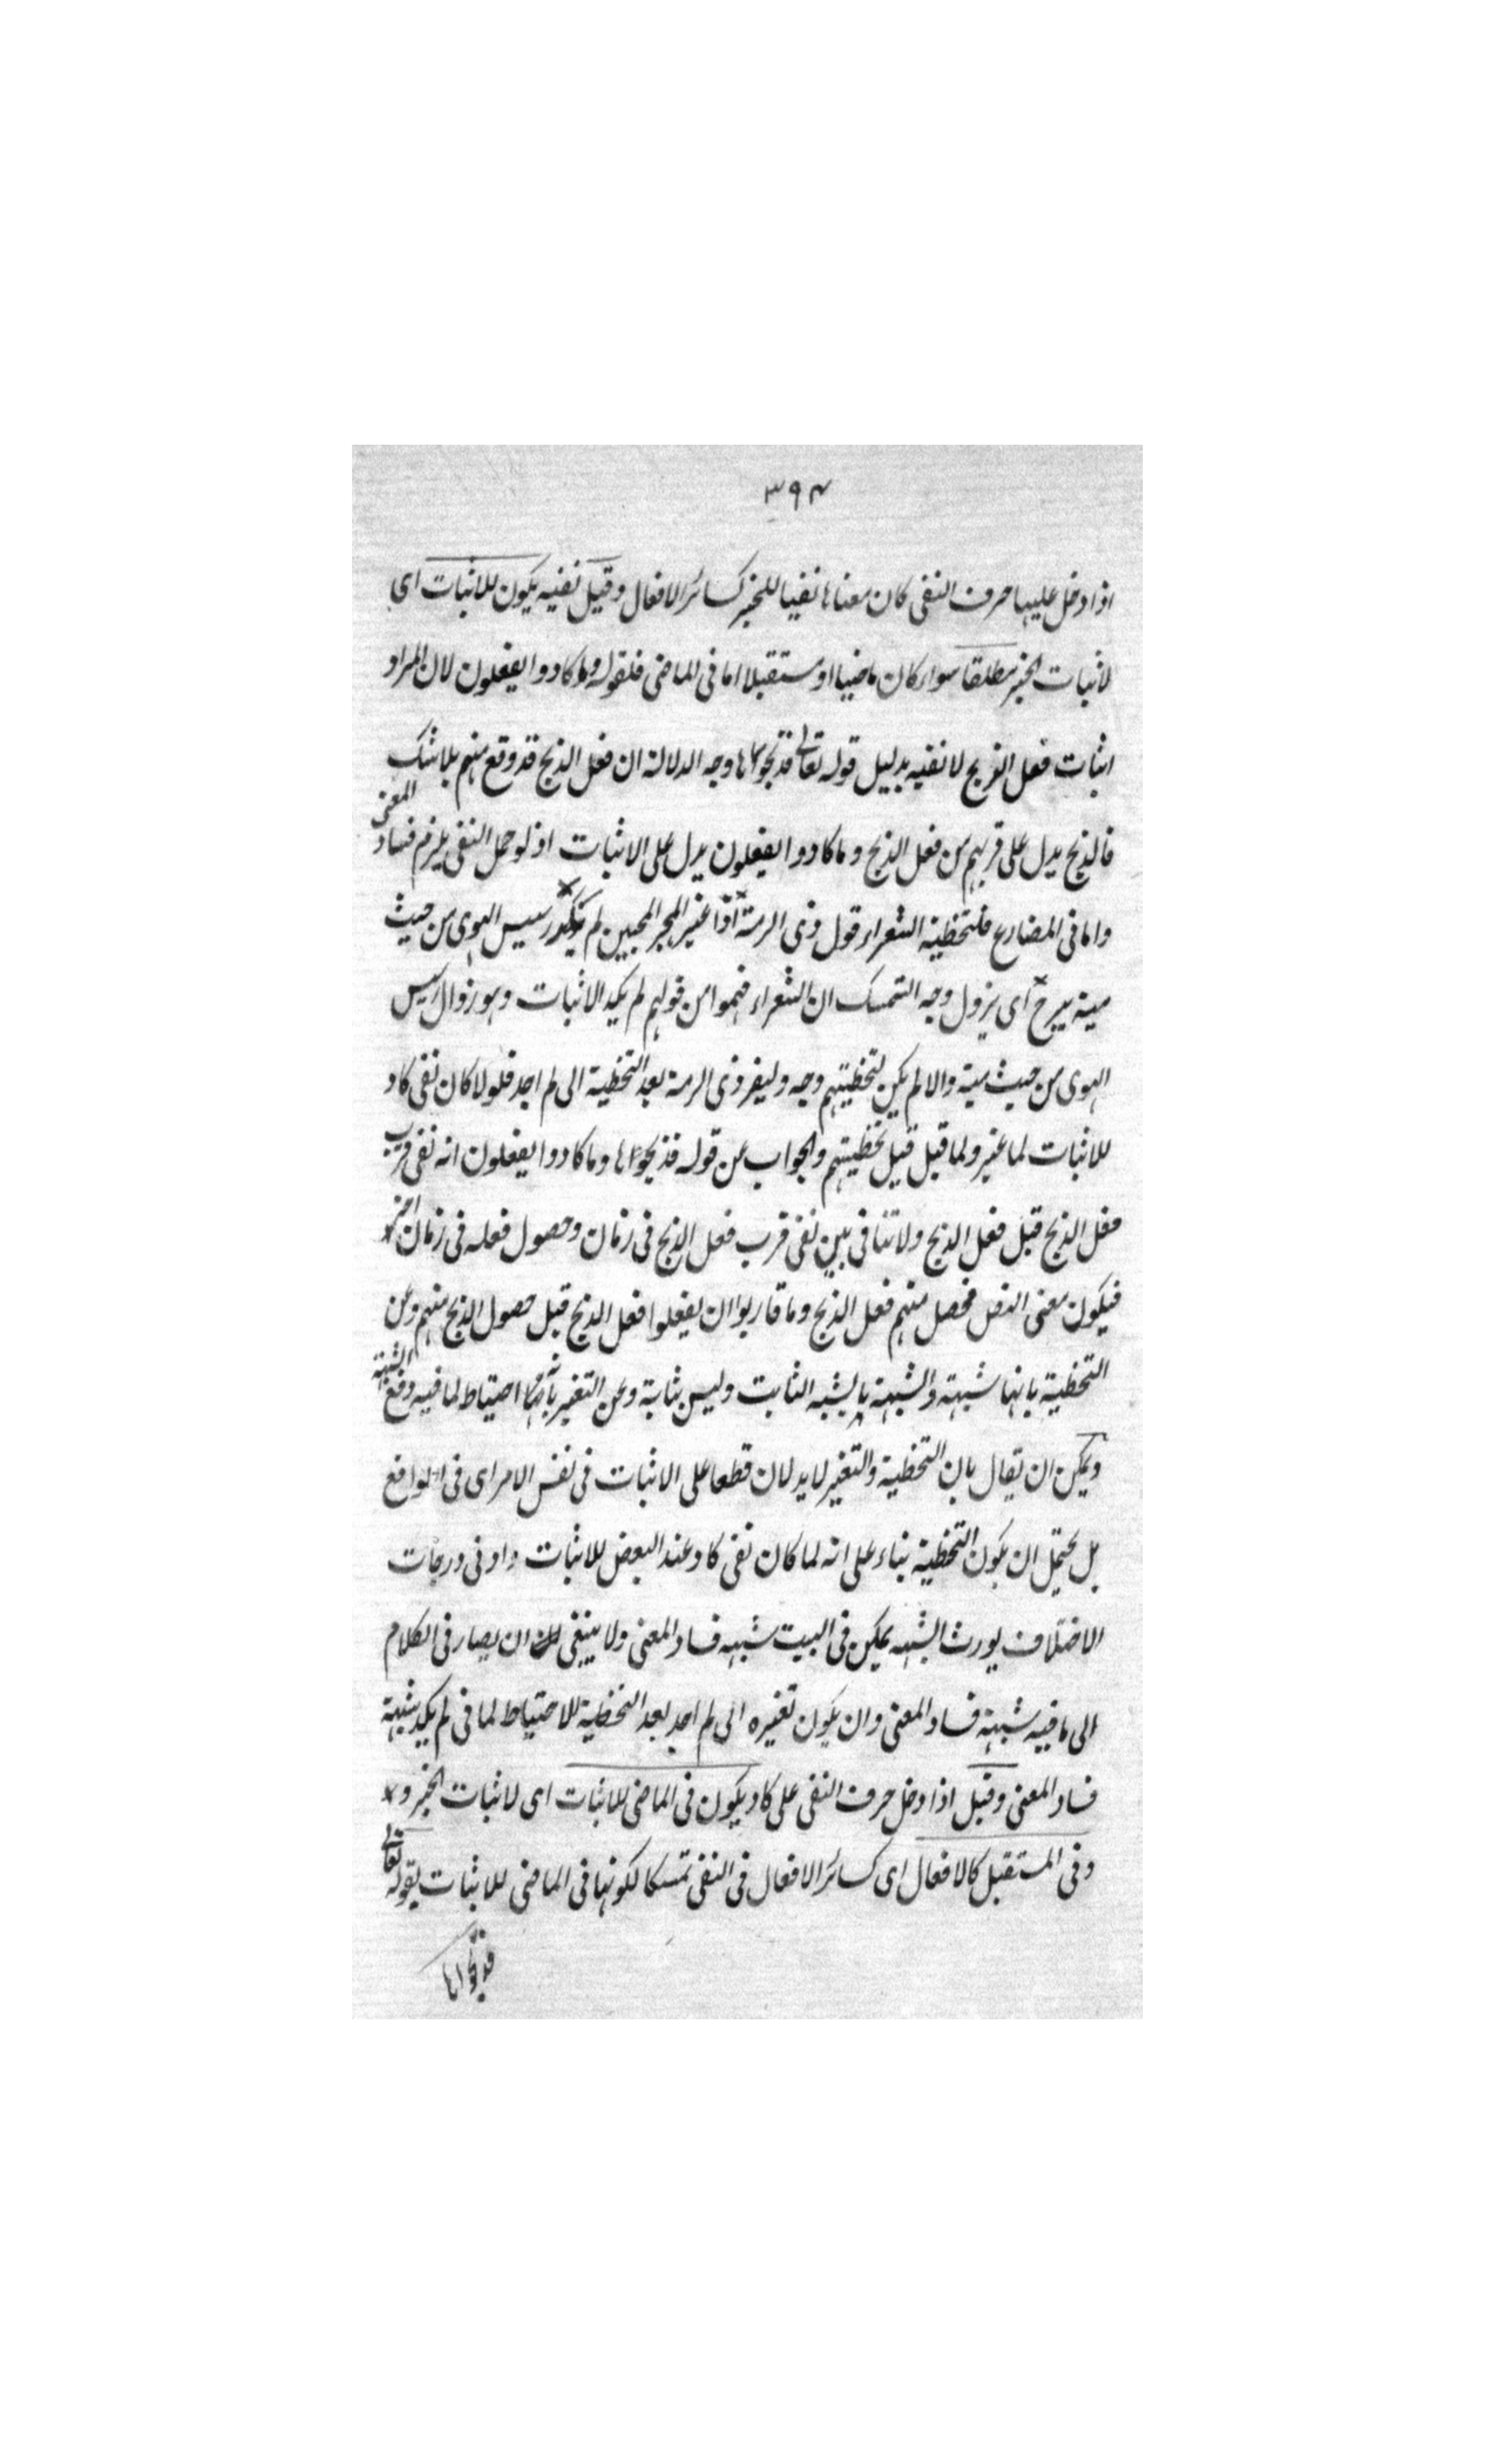 ٣٩٤
اذا دخل عليها حرف النفى كان معناها نفيا للخبر كسائر الافعال وقيل نفيه يكون للاثبات اى
لاثبات الخبر مطلقا سواء كان ماضيا او مستقبلا اما فى الماضى فلقوله وما كادوا يفعلون لان المراد
اثبات فعل الذبح لا نفيه بدليل قوله تعالى فذبحوها وجه الدلالة ان فعل الذبح قد وقع منهم بلا شك
فالذبح يدل على قربهم من فعل الذبح وما كادوا يفعلون يدل على الاثبات اذ لو حمل النفى يلزم فساد المعنى
واما فى المضارع فلتخطية الشعراء قول ذى الرمة اذا غير الهجر المحبين لم يكد رسيس الهوى من حيث
مية يبرح اى يزول وجه التمسك ان الشعراء فهموا من قولهم لم يكد الاثبات وهو زوال رسيس
الهوى من حيث مية والا لم يكن لتخطيتهم وجه وليغر ذى الرمة بعد التخطية الى لم اجد فلولا كان نفى كاد
للاثبات لما غير ولما قبل قيل تخطيتهم والجواب عن قوله فذبحوها وما كادوا يفعلون انه نفى قرب
فعل الذبح قبل فعل الذبح ولا تنافى بين نفى قرب فعل الذبح فى زمان وحصول فعله فى زمان اخر
فيكون معنى النص فحصل منهم فعل الذبح وما قاربوا ان يفعلوا فعل الذبح قبل حصول الذبح منهم وعن
التخطية بانها شبهة والشبهة ما يشبه الثابت وليس بثابة وعن التغير بانه احتياط لما فيه دفع الشبهة
ويمكن ان يقال بان التخطية والتغير لا يدلان قطعا على الاثبات فى نفس الامر اى فى الواقع
بل يحتمل ان يكون التخطية بناء على انه لما كان نفى كاد عند البعض للاثبات وادنى درجات
الاختلاف يورث الشبهه يمكن فى البيت شبهه فساد المعنى ولا ينبغى ان يصار فى الكلام
الى ما فيه شبهة فساد المعنى وان يكون تغيره الى لم اجد بعد التخطية للاحتياط لما فى لم يكد شبهة
فساد المعنى وقيل اذا دخل حرف النفى على كاد يكون فى الماضى للاثبات اى لاثبات الخبر و
وفى المستقبل كالافعال اى كسائر الافعال فى النفى تمسكا لكونها فى الماضى للاثبات بقوله تعالى
فذبحوها